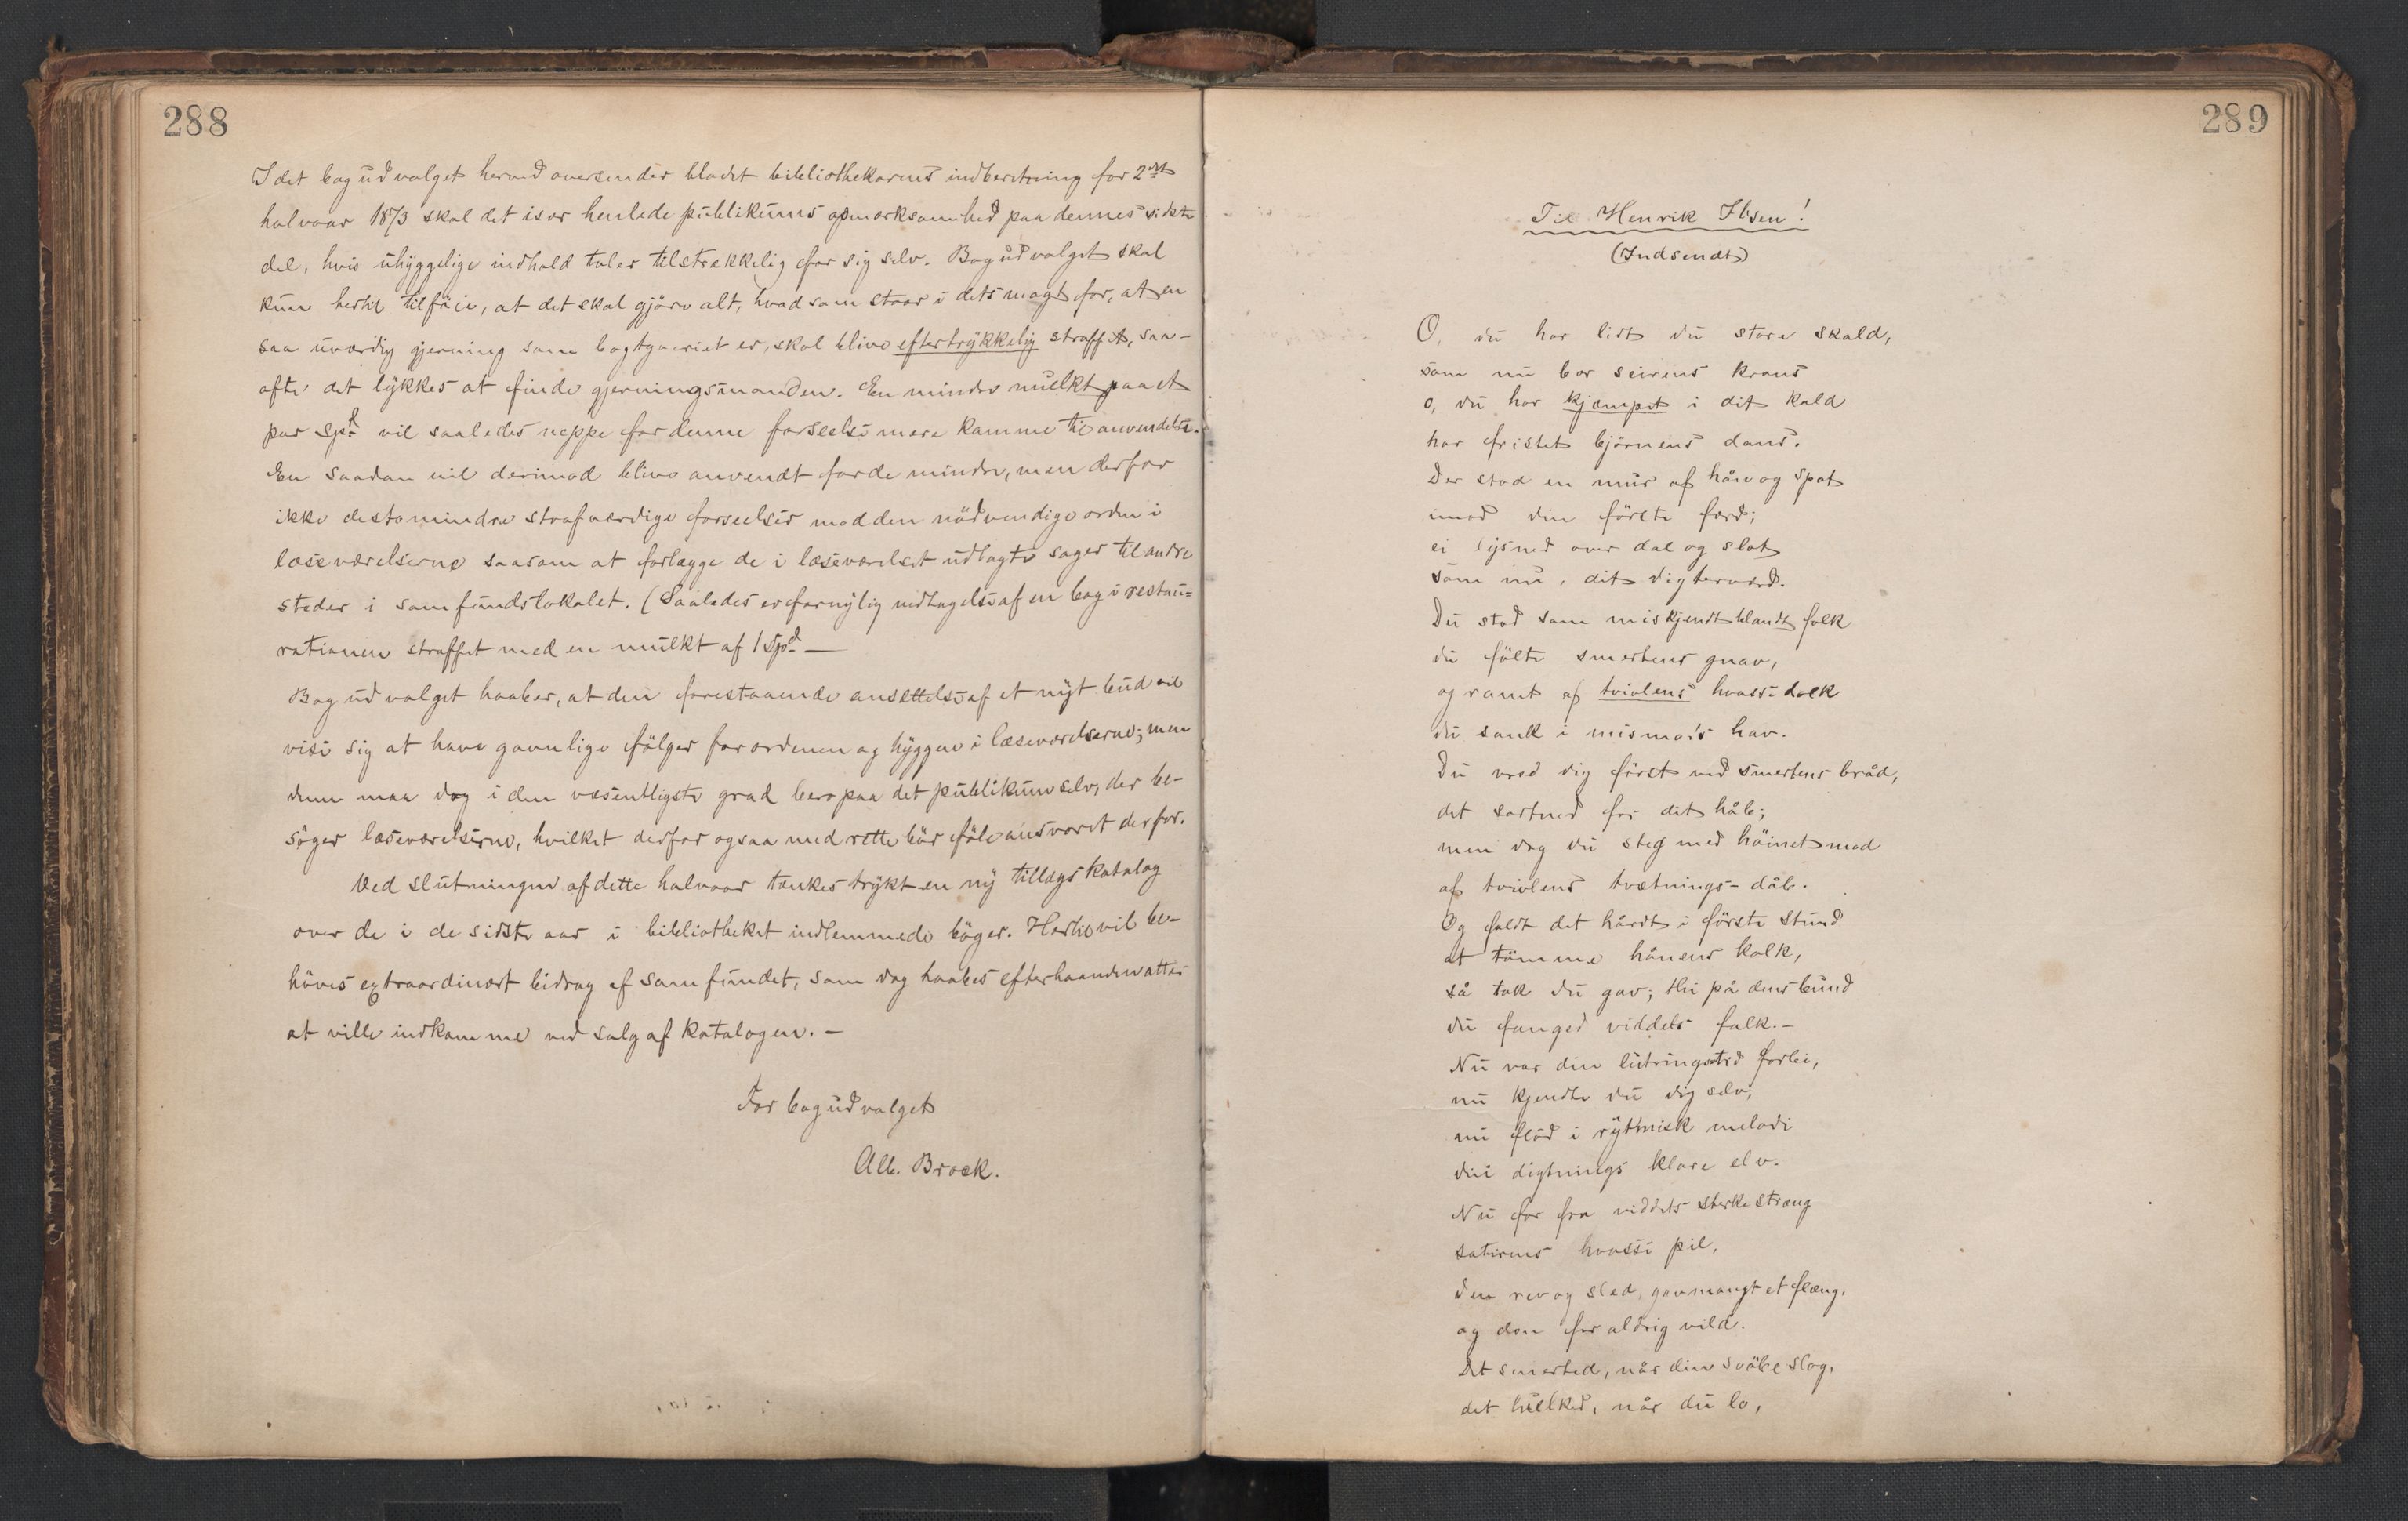 288
Idet bogudvalget herved oversender bladet bibliothekarens indberetning for 2det
halvaar 1873 skal det især henlede publikums opmærksomhed paa dennes sidste
del, hvis uhyggelige indhold taler tilstrækkelig for sig selv. Bogudvalget skal
kun hertil tilføie, at det skal gjøre alt, hvad som staar i dets magt for, at en
saa uværdig gjerning som bogtyveriet er, skal blive eftertrykkelig straffet, saa-
ofte det lykkes at finde gjerningsmanden. En mindre mulkt paa et
par Spd vil saaledes neppe for denne forseelse mere komme til anvendelse.
En saadan vil derimod blive anvendt for de mindre, men derfor
ikke destomindre strafværdige forseelser mod den nødvendige orden i
læseværelserne saasom at forlægge de i læseværelset udlagte sager til andre
steder i samfundslokalet. (Saaledes er fornylig medtagelse af en bog i restau=
rationen straffet med en mulkt af 1 Spd. —
Bogudvalget haaber, at den forestaaende ansettelse af et nyt bud vil
vise sig at have gavnlige følger for ordenen og hyggen i læseværelserne; men
denne maa dog i den væsentligste grad bero paa det publikum selv, der be-
søger læseværelserne, hvilket derfor ogsaa med rette bør føle ansvaret derfor.
Ved slutningen af dette halvaar tænkes trykt en ny tillægskatalog
over de i de sidste aar i bibliotheket indlemmede bøger. Hertil vil be-
høves extraordinært bidrag af samfundet, som dog haabes efterhaanden atter
at ville indkomme ved salg af katalogen. —
For bogudvalget
Alb. Brock.
289
Til Henrik Ibsen!
(Indsendt)
O, du har lidt du store skald,
som nu bær seirens krans
o, du har kjæmpet i dit kald
har fristet bjørnens dans.
Der stod en mur af hån og spot
imod din første færd;
ei lysned over dal og slot
som nu, dit digterværd.
Du stod som miskjendt blandt folk
du følte smertens gnav,
og ramt af tvivlens hvasse dolk
du sank i mismods hav.
Du vred dig først ved smertens bråd,
det sortned for dit håb;
men dog du steg med høinet mod
af tvivlens tvætnings-dåb.
Og faldt det hårdt i første stund
at tømme hånens kalk,
så tak du gav; thi på dens bund
du fanged viddets falk. —
Nu var din lutringstid forbi,
nu kjendte du dig selv;
nu flød i rytmisk melodi
din digtnings klare elv.
Nu for fra viddets sterke streng
satirens hvasse pil,
den rev og sled, gav mangt et flæng,
og den for aldrig vild.
Det smerted, når din svøbe slog,
det hulked, når du lo,